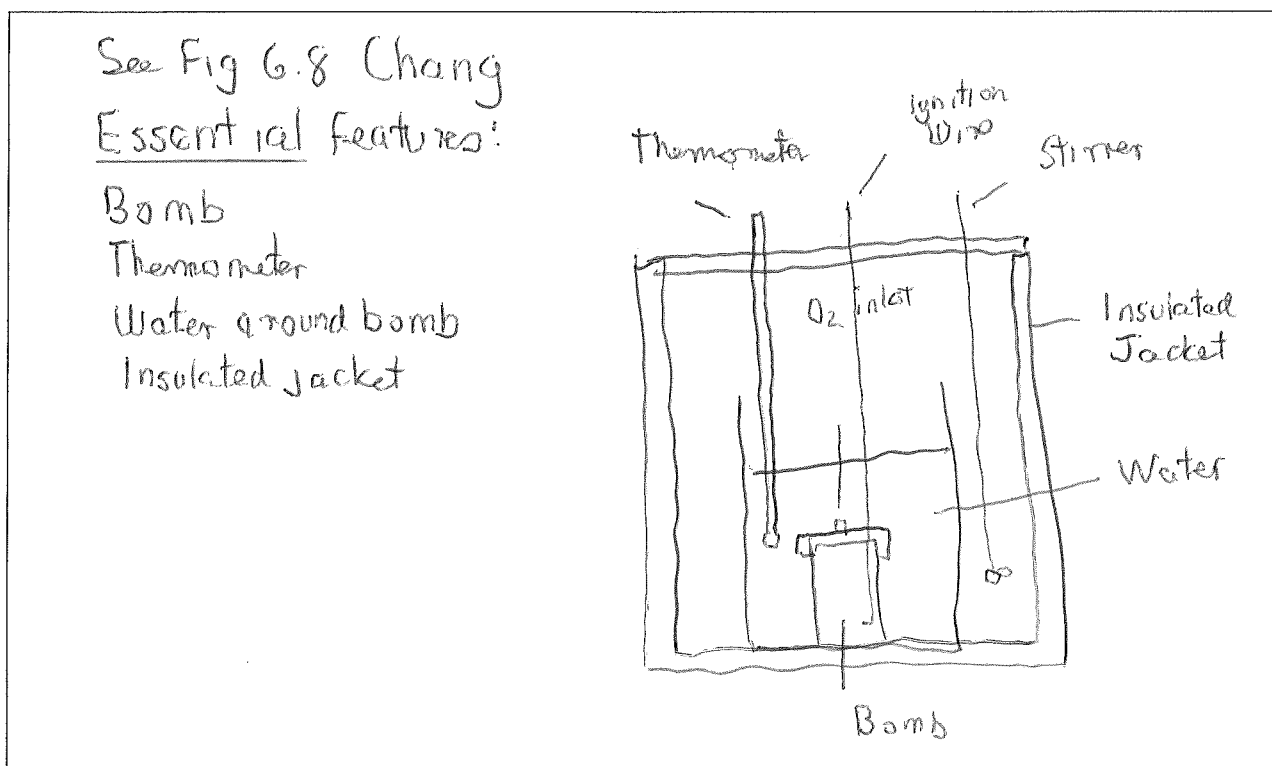 See Fig 6.8 Chang
Essential features:
Bomb
Thermometer
Water around bomb
Insulated jacket
Thermometer
ignition
Wire
Stirrer
O2 inlet
Insulated
Jacket
Water
Bomb